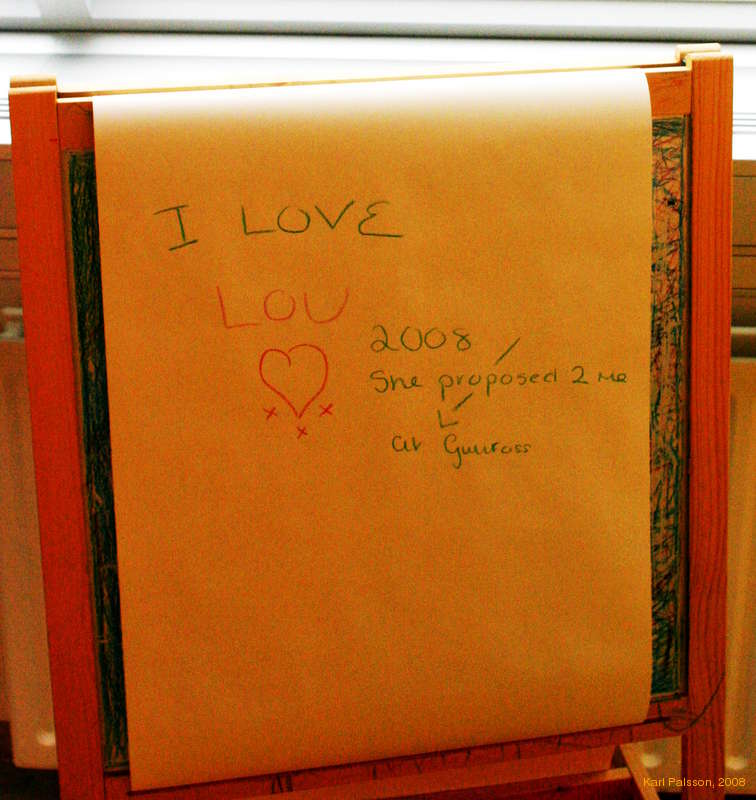 I LOVE
LOU
2008
She proposed 2 me
at
Karl Palsson, 2008